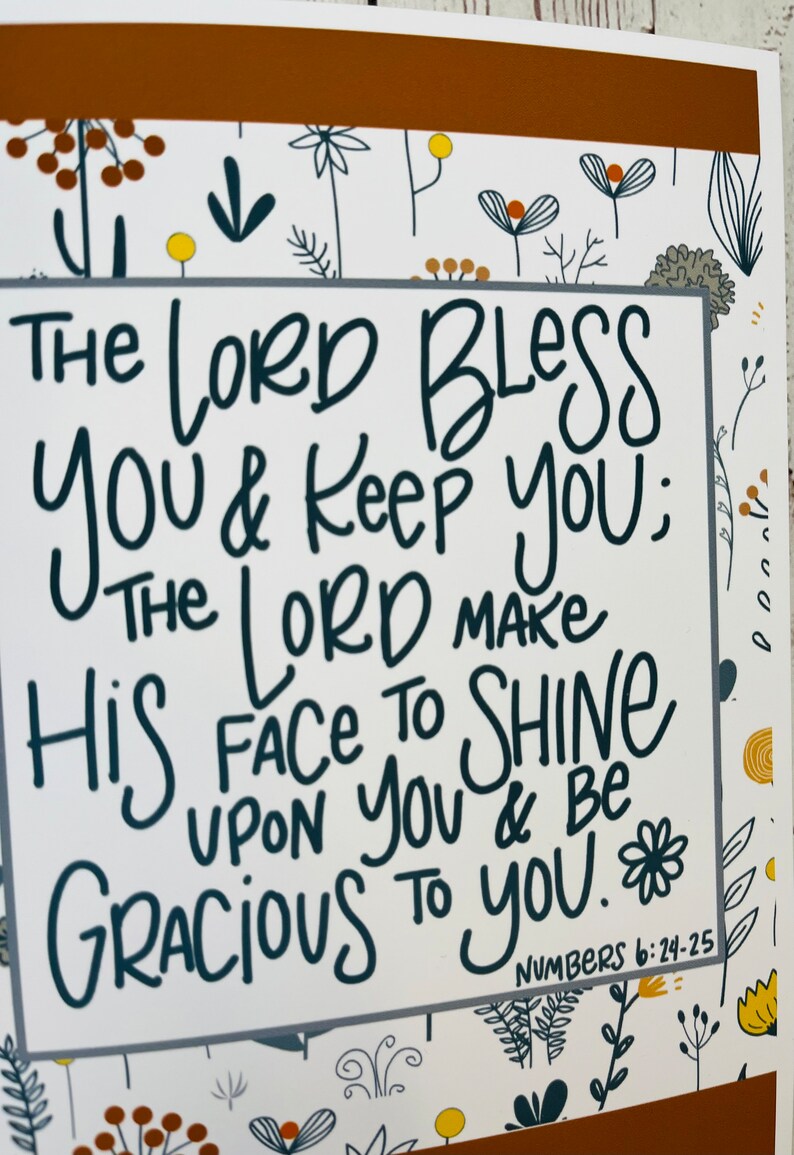 THE LORD BLESS
YOU & KEEP YOU;
THE LORD MAKE
HIS FACE TO SHINE
UPON YOU & BE
GRACIOUS TO YOU.
NUMBERS 6:24-25